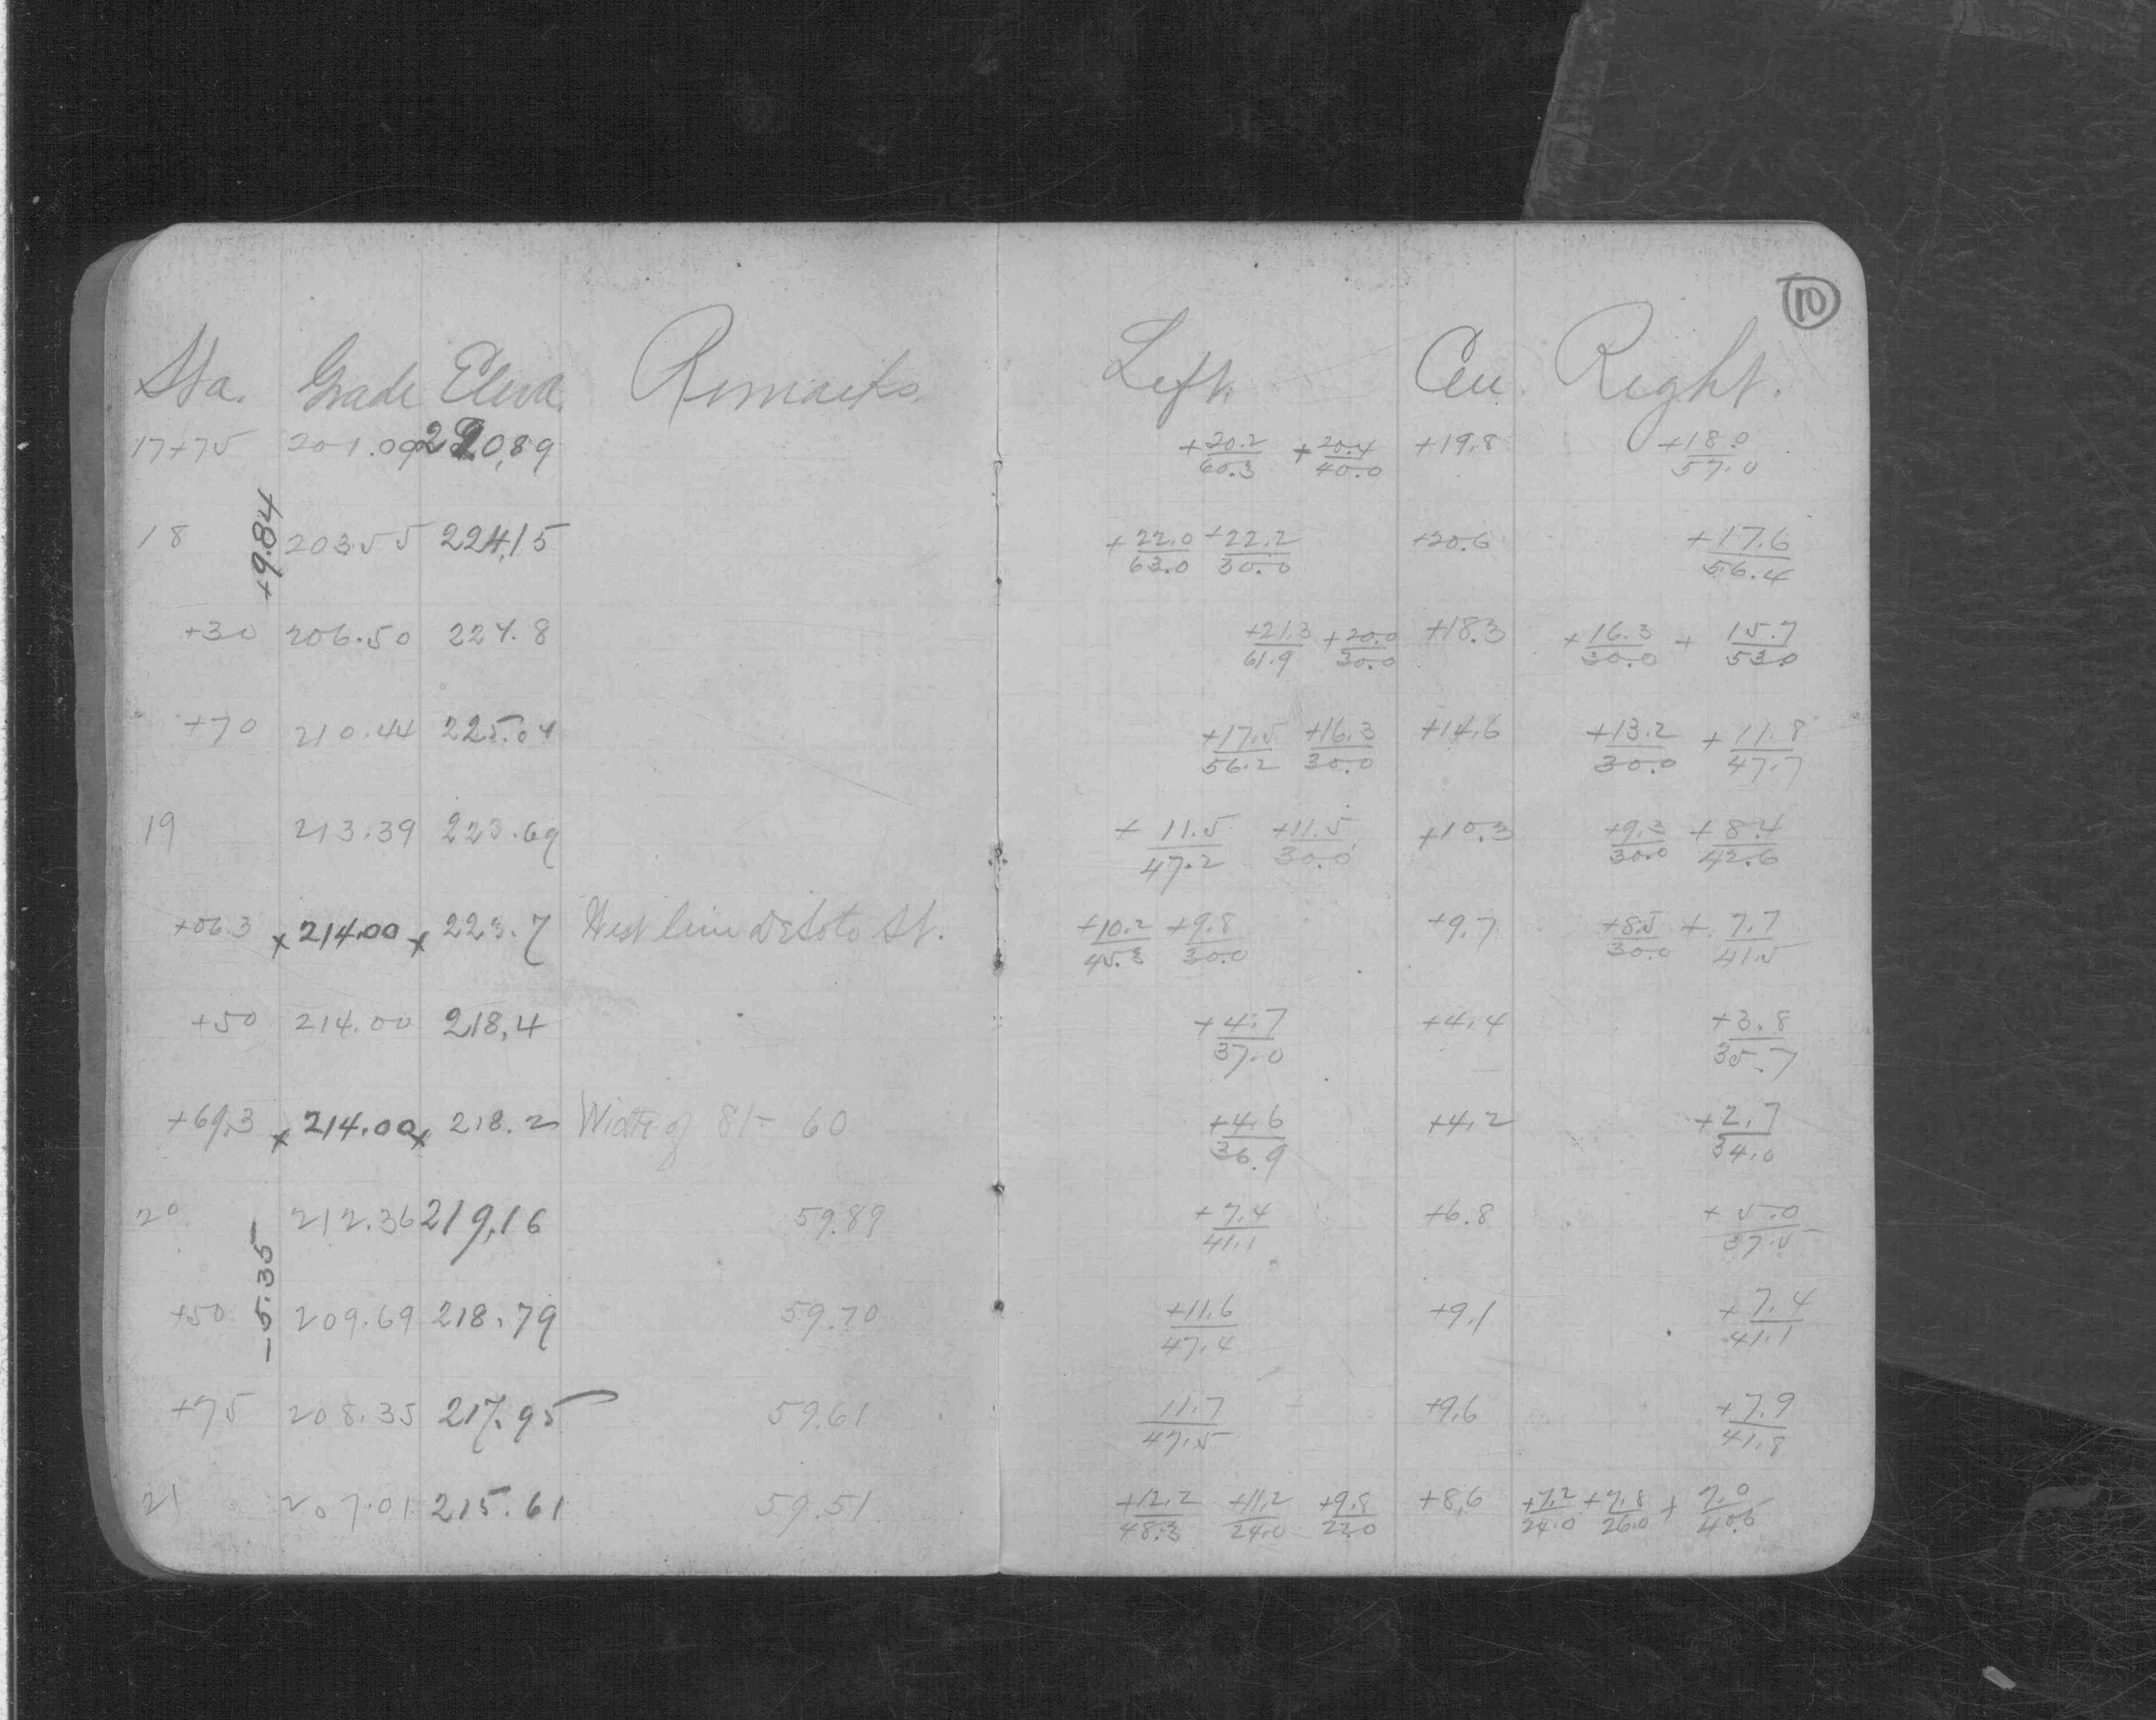 10
Sta. Grade Eleva. Remarks. Left. Cen. Right.
17+75 201.09 220.89 +20.2/60.3 +20.4/40.0 +19.8 +18.0/57.0
+9.84
18 203.55 224.15 +22.0/63.0 +22.2/30.0 +20.6 +17.6/56.4
+30 206.50 224.8 +21.3/61.9 +20.0/30.0 +18.3 +16.3/30.0 + 15.7/53.0
+70 210.44 225.04 +17.5/56.2 +16.3/30.0 +14.6 +13.2/30.0 +11.8/47.7
19 213.39 223.69 +11.5/47.2 +11.5/30.0 +10.3 +9.3/30.0 +8.4/42.6
+06.3 x 214.00 x 223.7 West line DeSoto St. +10.2/45.3 +9.8/30.0 +9.7 +8.5/30.0 + 7.7/41.5
+50 214.00 218.4 +4.7/37.0 +4.4 +3.8/35.7
+69.3 x 214.00 x 218.2 Width of St- 60 +4.6/36.9 +4.2 +2.7/34.0
20 212.36 219.16 59.89 +7.4/41.1 +6.8 +5.0/37.5
-5.35
+50 209.69 218.79 59.70 +11.6/47.4 +9.1 +7.4/41.1
+75 208.35 217.95 59.61 11.7/47.5 +9.6 +7.9/41.8
21 207.01 215.61 59.51 +12.2/48.3 +11.2/24.0 +9.8/22.0 +8.6 +7.2/24.0 +7.8/26.0 + 7.0/40.5